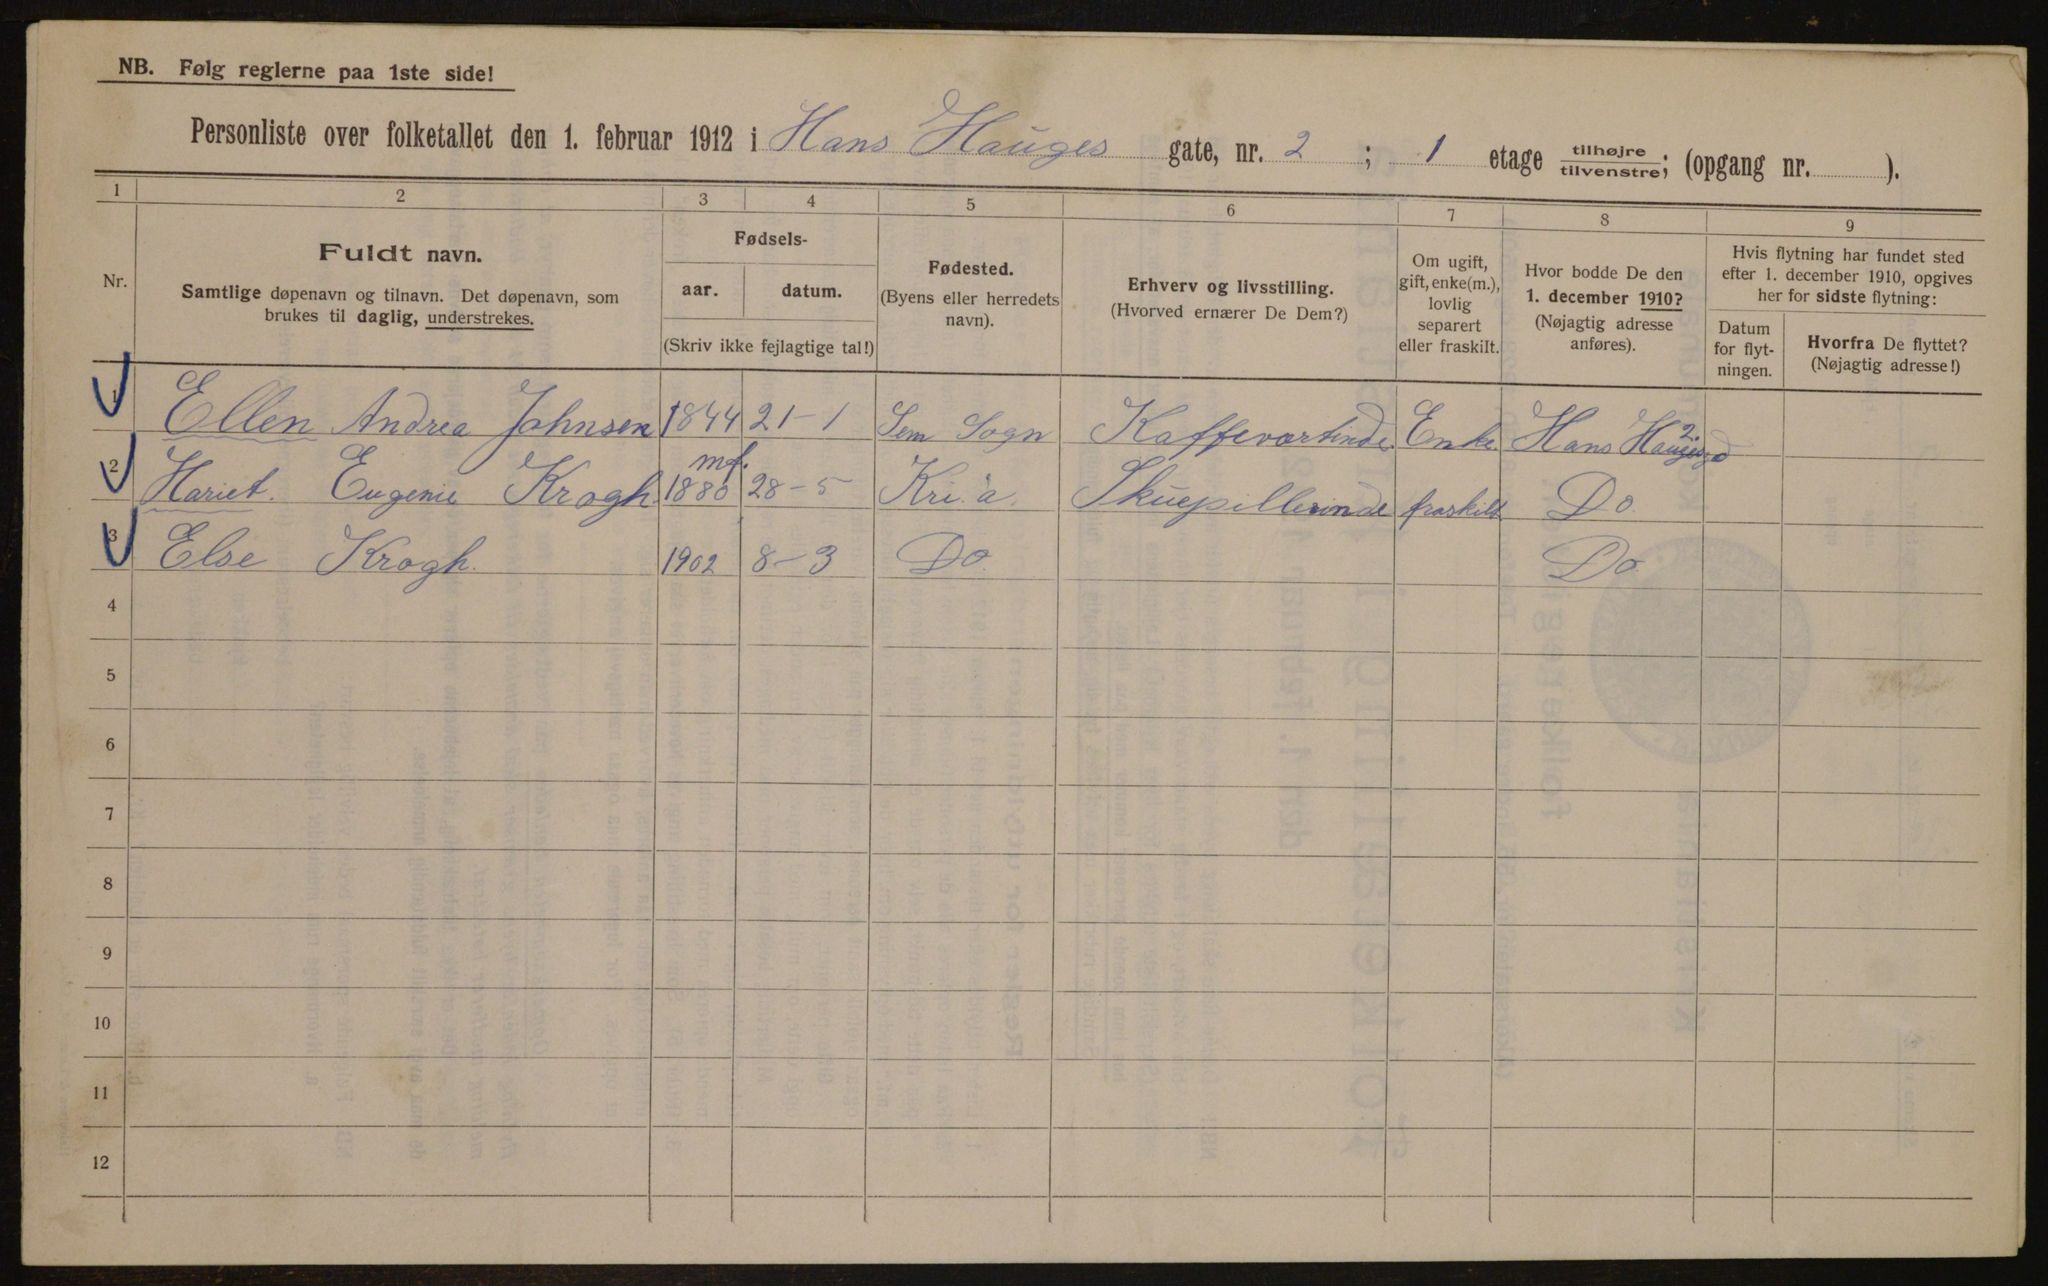 NB. Følg reglerne paa 1ste side!
Personliste over folketallet den 1. februar 1912 i Hans Hauges gate, nr. 2 ; 1 etage tilhøjre/tilvenstre; (opgang nr. ).
1 2 3 4 5 6 7 8 9
Nr.
Fuldt navn.
Samtlige døpenavn og tilnavn. Det døpenavn, som
brukes til daglig, understrekes.
Fødsels-
aar. datum.
(Skriv ikke fejlagtige tal!)
Fødested.
(Byens eller herredets
navn).
Erhverv og livsstilling.
(Hvorved ernærer De Dem?)
Om ugift,
gift, enke(m.),
lovlig
separert
eller fraskilt.
Hvor bodde De den
1. december 1910?
(Nøjagtig adresse
anføres).
Hvis flytning har fundet sted
efter 1. december 1910, opgives
her for sidste flytning:
Datum
for flyt-
ningen.
Hvorfra De flyttet?
(Nøjagtig adresse!)
1 Ellen Andrea Johnsen 1844 21-1 Sem Sogn Kaffevartinde Enke Hans Hauges gd 2
mf.
2 Hariet. Eugenie Krogh 1880 28-5 Kri.a. Skuepillerinde fraskilt Do
3 Else Krogh. 1902 8-3 Do. Do.
4
5
6
7
8
9
10
11
12